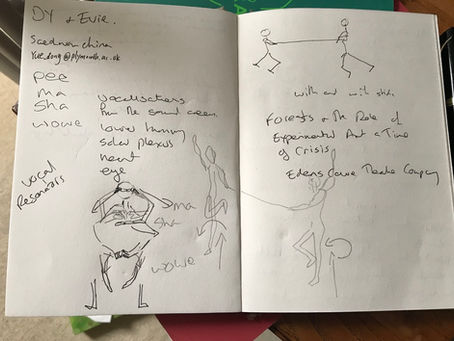 DY & Evie.
yue.dong@plymouth.ac.uk
pee
ma
sha
wowe
vocalisations
from the sound
lower tummy
solar plexus
heart
eye
vocal
Resonators
ma
sha
wowe
with and with stick
Forests & the Role of
Experimental Art a Time
of Crisis
Edens Theatre Company